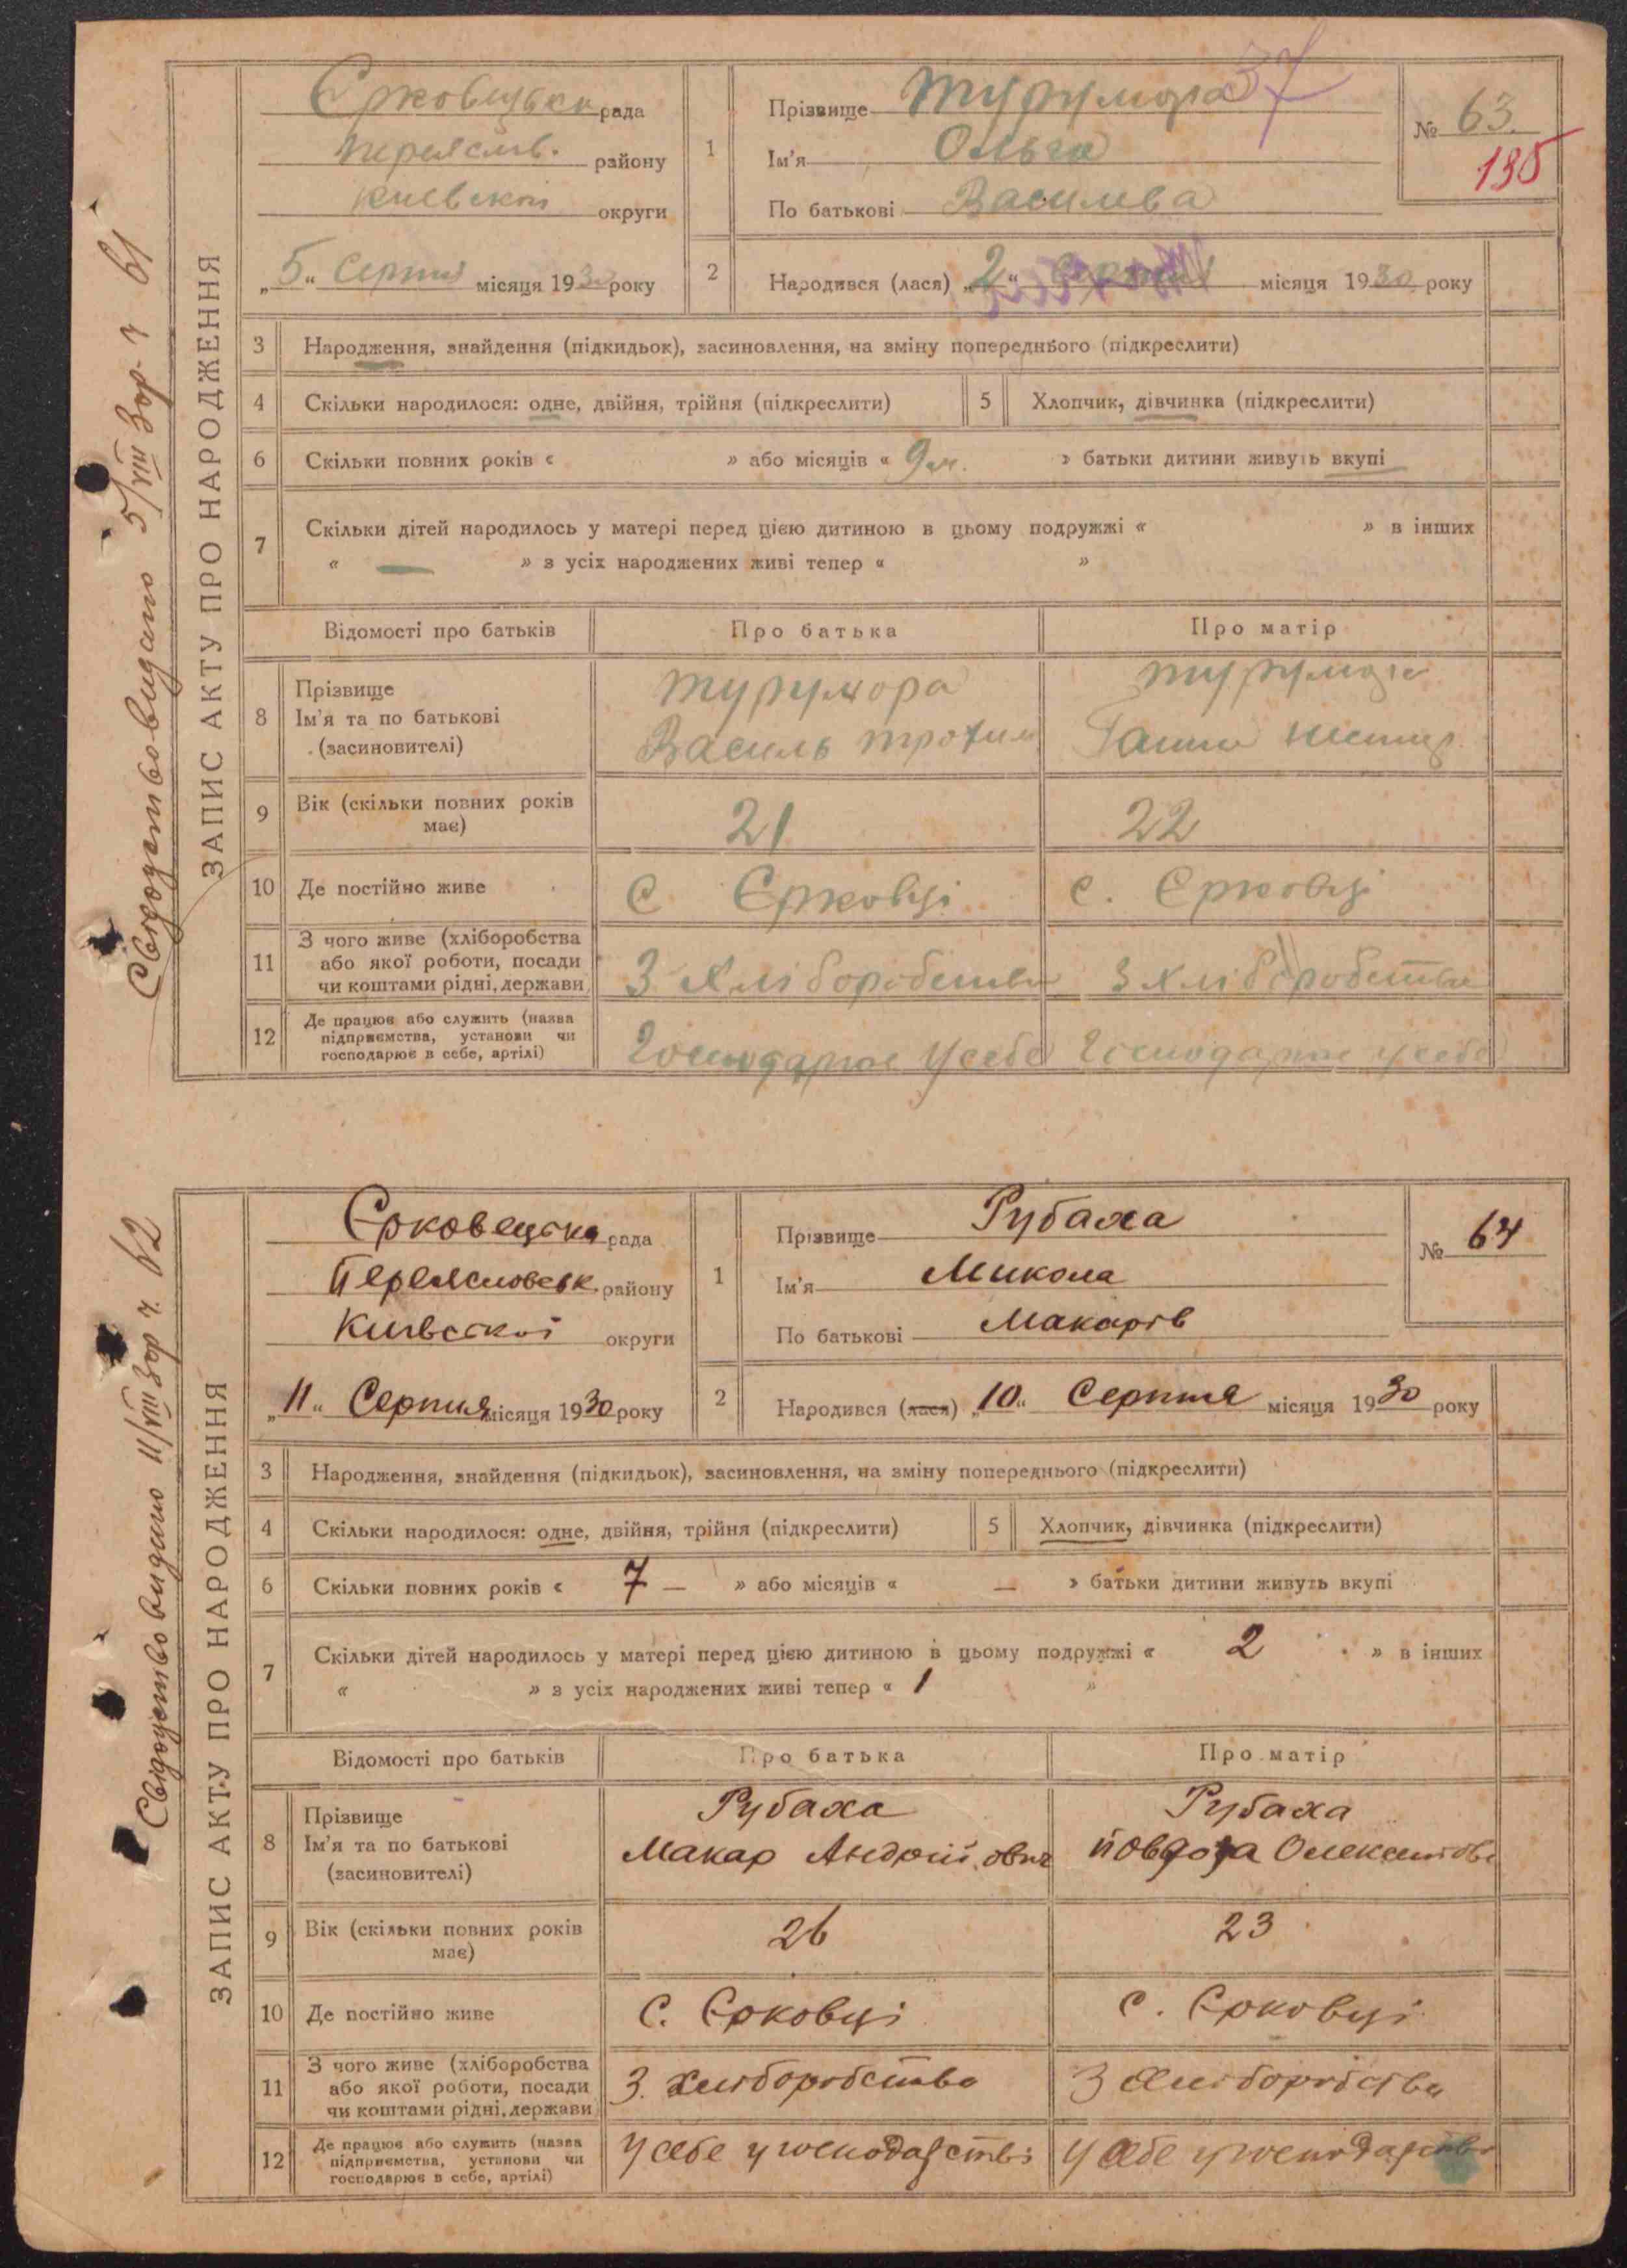 ЗАПИС АКТУ ПРО НАРОДЖЕННЯ
Свідоцтво видано 5/VIII 30 р. ч 61
Єрковецька рада
Переяслів. району
Київської округи
„5“ Серпня місяця 1930 року
1
Прізвище Турумора
37
Ім'я Ольга
По батькові Василева
№ 63.
135
2
Народився (лася) „2“ Серпня місяця 1930 року
3 Народження, знайдення (підкидьок), засиновлення, на зміну попереднього (підкреслити)
4 Скільки народилося: одне, двійня, трійня (підкреслити) 5 Хлопчик, дівчинка (підкреслити)
6 Скільки повних років « » або місяців « 9 м. » батьки дитини живуть вкупі
7 Скільки дітей народилось у матері перед цією дитиною в цьому подружжі « » в інших
« — » з усіх народжених живі тепер « »
Відомості про батьків Про батька Про матір
8 Прізвище
Ім'я та по батькові
(засиновителі)
Турумора
Василь Трохим
Турумора
Ганна
9 Вік (скільки повних років має) 21 22
10 Де постійно живе С Єрковці с. Єрковці
11 З чого живе (хліборобства
або якої роботи, посади
чи коштами рідні, держави
З хліборобства З хліборобства
12 Де працює або служить (назва
підприємства, установи чи
господарює в себе, артілі)
Господарює у себе Господарює у себе
ЗАПИС АКТУ ПРО НАРОДЖЕННЯ
Свідоцтво видано 11/VIII 30 р ч. 62
Єрковецька рада
Переясловськ. району
Київської округи
„11“ Серпня місяця 1930 року
1
Прізвище Рубаха
Ім'я Микола
По батькові Макарів
№ 64
2
Народився (лася) „10“ Серпня місяця 1930 року
3 Народження, знайдення (підкидьок), засиновлення, на зміну попереднього (підкреслити)
4 Скільки народилося: одне, двійня, трійня (підкреслити) 5 Хлопчик, дівчинка (підкреслити)
6 Скільки повних років « 7 — » або місяців « — » батьки дитини живуть вкупі
7 Скільки дітей народилось у матері перед цією дитиною в цьому подружжі « 2 » в інших
« » з усіх народжених живі тепер « 1 »
Відомості про батьків Про батька Про матір
8 Прізвище
Ім'я та по батькові
(засиновителі)
Рубаха
Макар Андрійович
Рубаха
Йовдоха
9 Вік (скільки повних років має) 26 23
10 Де постійно живе С. Єрковці с. Єрковці
11 З чого живе (хліборобства
або якої роботи, посади
чи коштами рідні, держави
З. хліборобства З хліборобства
12 Де працює або служить (назва
підприємства, установи чи
господарює в себе, артілі)
У себе у господарстві У себе у господарстві